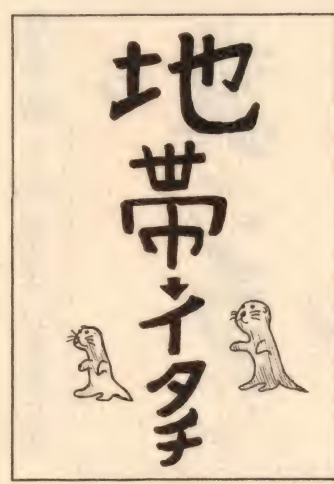 地帯・イタチ